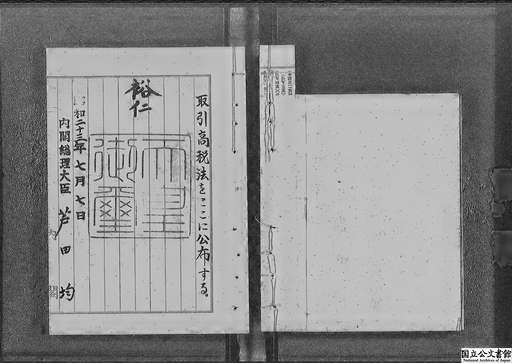 取引高税法をここに公布する。
裕仁
天皇御璽
昭和二十三年七月七日
内閣総理大臣 芦田均
国立公文書館
National Archives of Japan